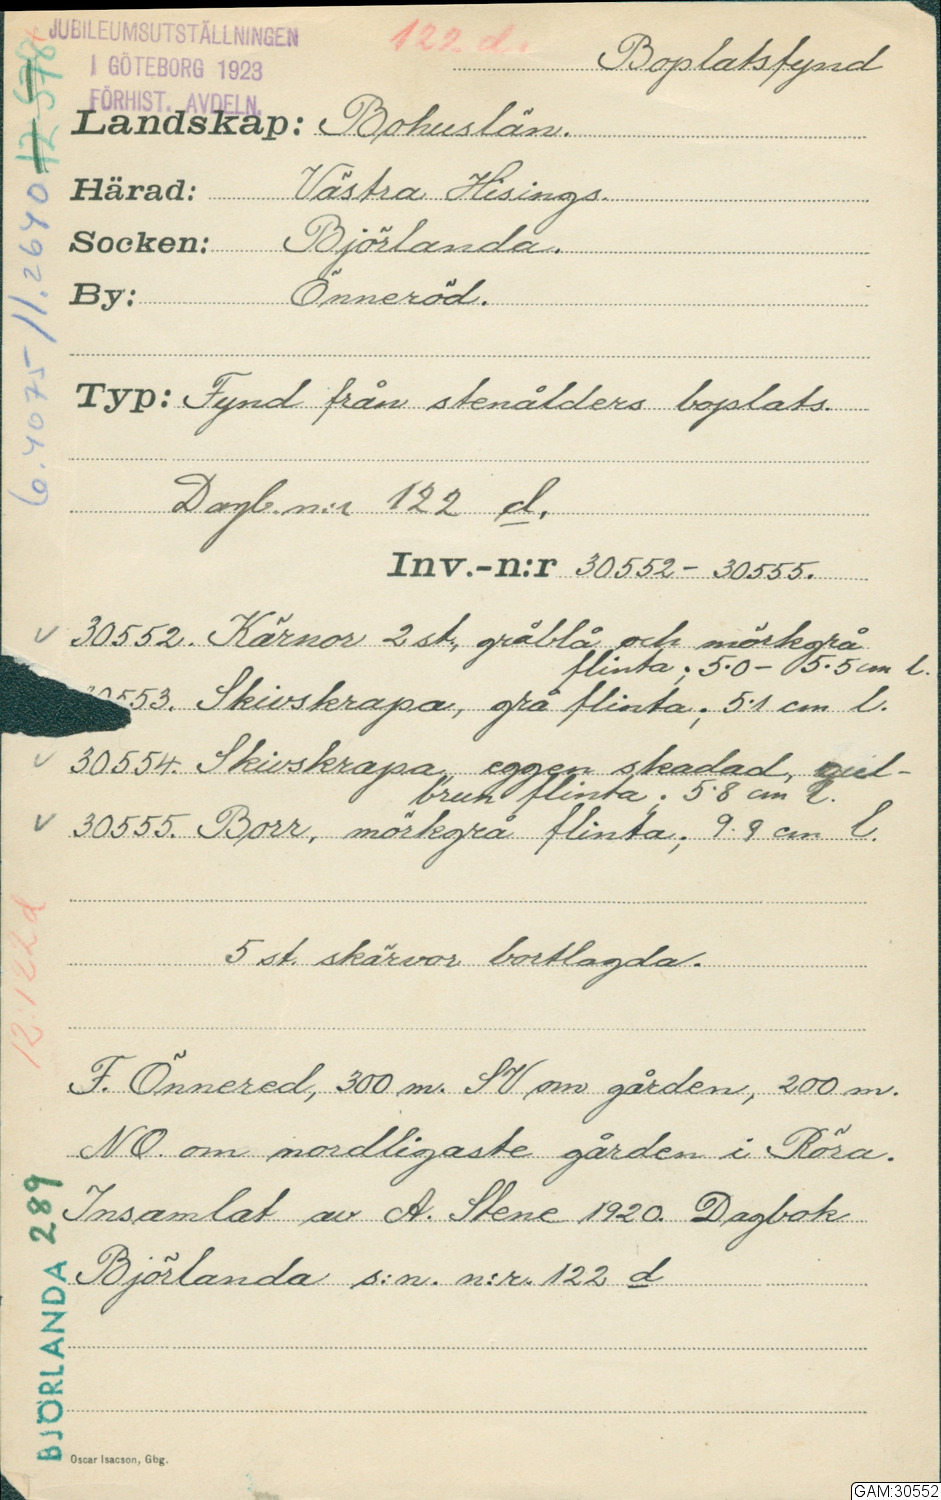 JUBILEUMSUTSTÄLLNINGEN
I GÖTEBORG 1923
FÖRHIST. AVDELN.
122 d.
Boplatsfynd
Landskap: Bohuslän.
Härad: Västra Hisings.
Socken: Björlanda.
By: Önneröd.
Typ: Fynd från stenålders boplats.
Dagb. n:r 122 d.
Inv.-n:r 30552 - 30555.
v 30552. Kärnor 2 st., gråblå och mörkgrå
flinta; 5.0 - 5.5 cm l.
30553. Skivskrapa, grå flinta; 5.1 cm l.
v 30554. Skivskrapa, eggen skadad, gul-
brun flinta; 5.8 cm l.
v 30555. Borr, mörkgrå flinta; 9.9 cm l.
5 st. skärvor bortlagda.
F. Önnered, 300 m. SV om gården, 200 m.
NO. om nordligaste gården i Röra.
Insamlat av A. Stene 1920. Dagbok
Björlanda s:n. n:r. 122 d
Oscar Isacson, Gbg.
6.4075 / 1.2640
12:122d
BJÖRLANDA 289
GAM:30552